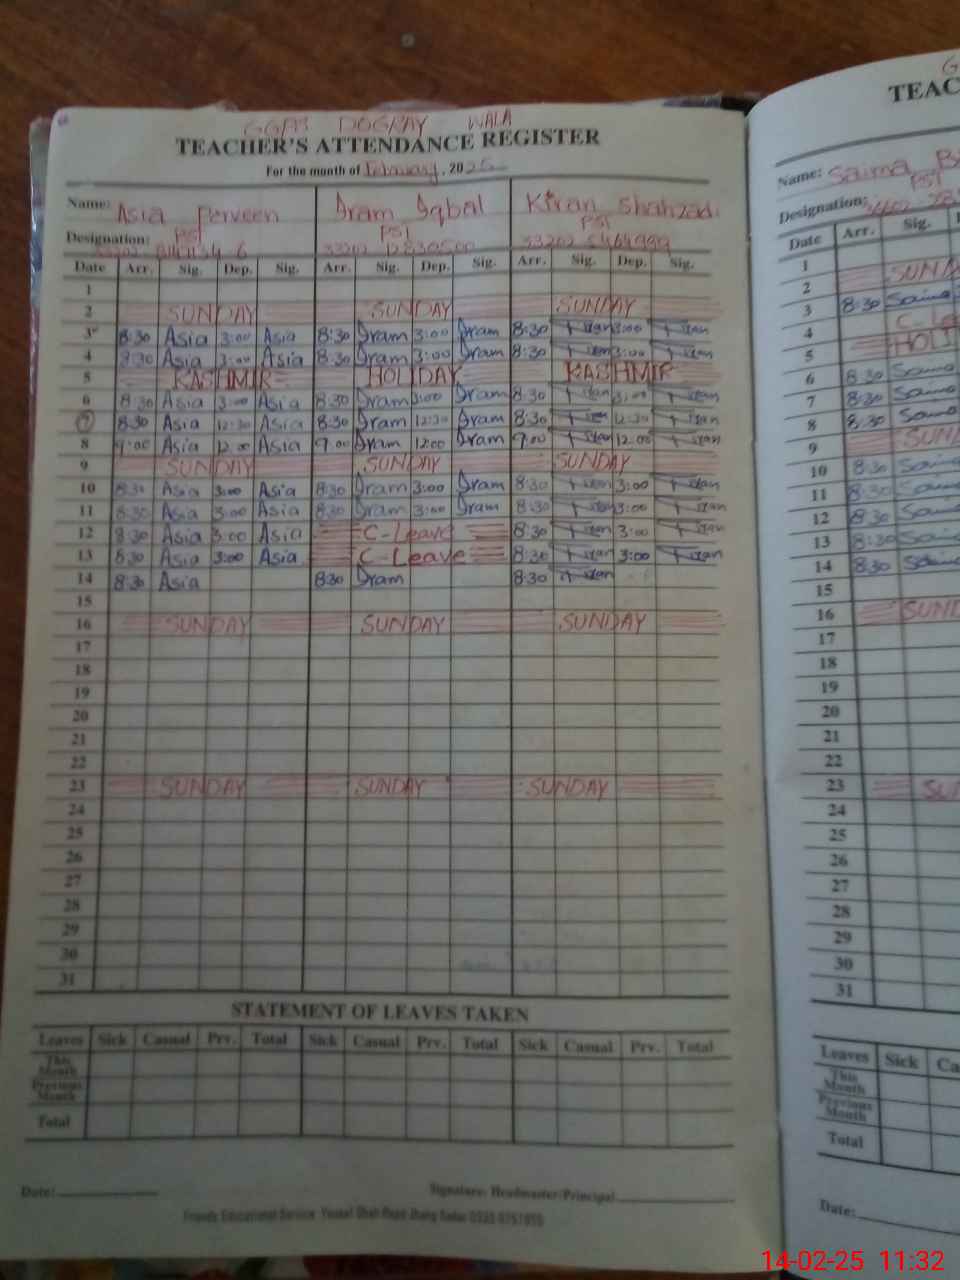 GGPS DOGRAY WALA
TEACHER'S ATTENDANCE REGISTER
For the month of February, 2025
Name: Asia Perveen Iram Iqbal Kiran Shahzadi
Designation: PST PST PST
33202 12830500 33202 5464999
Date Arr. Sig. Dep. Sig. Arr. Sig. Dep. Sig. Arr. Sig. Dep. Sig.
1
2 SUNDAY SUNDAY SUNDAY
3 8:30 Asia 3:00 Asia 8:30 Iram 3:00 Iram 8:30 3:00
4 8:30 Asia 3:00 Asia 8:30 Iram 3:00 Iram 8:30 3:00
5 KASHMIR HOLIDAY KASHMIR
6 8:30 Asia 3:00 Asia 8:30 Iram 3:00 Iram 8:30 3:00
7 8:30 Asia 12:30 Asia 8:30 Iram 12:30 Iram 8:30 12:30
8 9:00 Asia 12:00 Asia 9:00 Iram 12:00 Iram 9:00 12:00
9 SUNDAY SUNDAY SUNDAY
10 8:30 Asia 3:00 Asia 8:30 Iram 3:00 Iram 8:30 3:00
11 8:30 Asia 3:00 Asia 8:30 Iram 3:00 Iram 8:30 3:00
12 8:30 Asia 3:00 Asia C-Leave 8:30 3:00
13 8:30 Asia 3:00 Asia C-Leave 8:30 3:00
14 8:30 Asia 8:30 Iram 8:30
15
16 SUNDAY SUNDAY SUNDAY
17
18
19
20
21
22
23 SUNDAY SUNDAY SUNDAY
24
25
26
27
28
29
30
31
STATEMENT OF LEAVES TAKEN
Leaves Sick Casual Prv. Total Sick Casual Prv. Total Sick Casual Prv. Total
This Month
Previous Month
Total
Date: Signature: Headmaster/Principal
TEAC
Name: Saima
Designation: PST
Date Arr. Sig.
1
2 SUN
3 8:30 Saima
4 C-Le
5 HOLI
6 8:30 Saima
7 8:30 Saima
8 8:30 Saima
9 SUN
10 8:30 Saima
11 8:30 Saima
12 8:30 Saima
13 8:30 Saima
14 8:30 Saima
15
16 SUND
17
18
19
20
21
22
23 SU
24
25
26
27
28
29
30
31
Leaves Sick Ca
This Month
Previous Month
Total
Date:
14-02-25 11:32